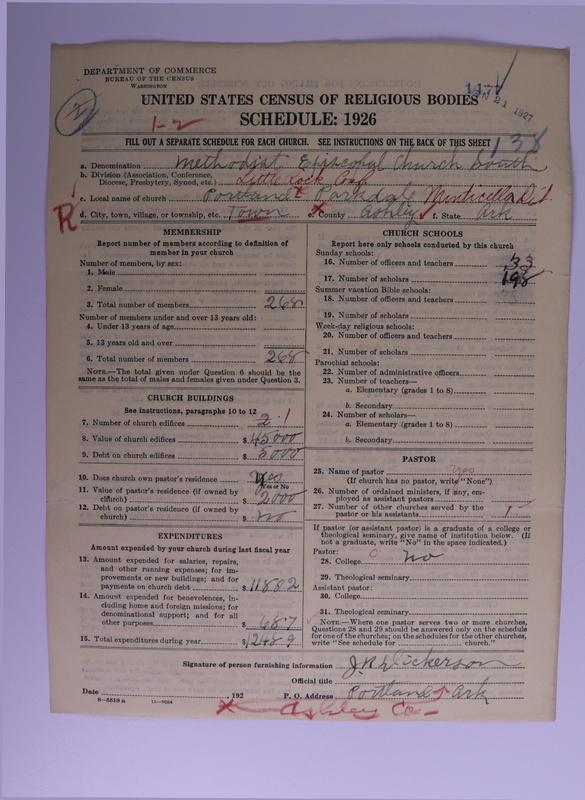 DEPARTMENT OF COMMERCE
BUREAU OF THE CENSUS
WASHINGTON
1477
JAN 21 1927
UNITED STATES CENSUS OF RELIGIOUS BODIES
SCHEDULE: 1926
1-2
138
FILL OUT A SEPARATE SCHEDULE FOR EACH CHURCH. SEE INSTRUCTIONS ON THE BACK OF THIS SHEET
a. Denomination Methodist Episcopal Church South
b. Division (Association, Conference, Diocese, Presbytery, Synod, etc.) Little Rock Conf.
c. Local name of church Portland & Parkdale Monticello Dist.
R
d. City, town, village, or township, etc. Town e. County Ashley f. State Ark
MEMBERSHIP
Report number of members according to definition of member in your church
Number of members, by sex:
1. Male
2. Female
3. Total number of members 268
Number of members under and over 13 years old:
4. Under 13 years of age
5. 13 years old and over
6. Total number of members 268
NOTE.—The total given under Question 6 should be the same as the total of males and females given under Question 3.
CHURCH BUILDINGS
See instructions, paragraphs 10 to 12
7. Number of church edifices 2 1
8. Value of church edifices $45000
9. Debt on church edifices $5000
10. Does church own pastor's residence Yes
Yes or No
11. Value of pastor's residence (if owned by church) $2000
12. Debt on pastor's residence (if owned by church) $no
EXPENDITURES
Amount expended by your church during last fiscal year
13. Amount expended for salaries, repairs, and other running expenses; for improvements or new buildings; and for payments on church debt $11802
14. Amount expended for benevolences, including home and foreign missions; for denominational support; and for all other purposes $687
15. Total expenditures during year $12489
CHURCH SCHOOLS
Report here only schools conducted by this church
Sunday schools:
16. Number of officers and teachers 33
17. Number of scholars 198
Summer vacation Bible schools:
18. Number of officers and teachers
19. Number of scholars
Week-day religious schools:
20. Number of officers and teachers
21. Number of scholars
Parochial schools:
22. Number of administrative officers
23. Number of teachers—
a. Elementary (grades 1 to 8)
b. Secondary
24. Number of scholars—
a. Elementary (grades 1 to 8)
b. Secondary
PASTOR
25. Name of pastor yes
(If church has no pastor, write "None")
26. Number of ordained ministers, if any, employed as assistant pastors
27. Number of other churches served by the pastor or his assistants 1
If pastor (or assistant pastor) is a graduate of a college or theological seminary, give name of institution below. (If not a graduate, write "No" in the space indicated.)
Pastor:
28. College 0 No
29. Theological seminary
Assistant pastor:
30. College
31. Theological seminary
NOTE.—Where one pastor serves two or more churches, Questions 28 and 29 should be answered only on the schedule for one of the churches; on the schedules for the other churches, write "See schedule for church."
Signature of person furnishing information J. R. Dickerson
Official title
Date , 192 P. O. Address Portland Ark
8-5318 a 11-9034
x Ashley Co-